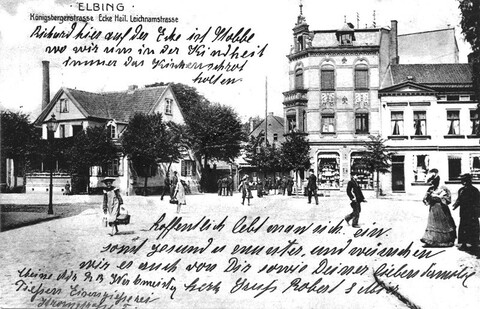 ELBING
Königsbergerstrasse Ecke Heil. Leichnamstrasse
Richard hier auf der Ecke ist Nobbe
wo wir uns in der Kindheit
immer das Kuchenschrot
holten.
hoffentlich lebt man sich ein.
sonst gesund u. munter, und wünschen
wir es auch von Dir sowie Deiner lieben Familie
herz. Gruß Robert
Meine Adr.
Tiefen